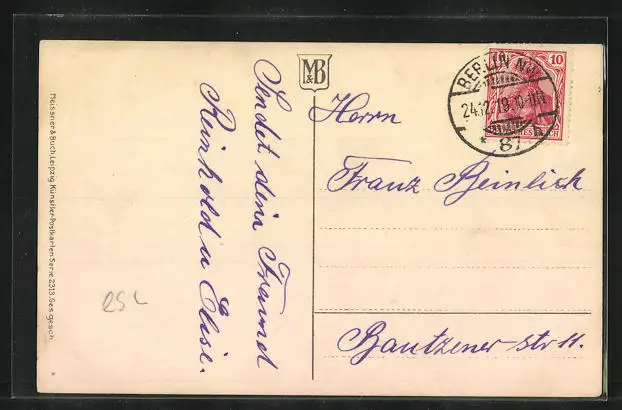 Meissner & Buch, Leipzig. Künstler-Postkarten Serie 2313. Ges. gesch.
Sendet dein Freund
Reinhold u Elise.
M&B
Herrn
Franz Beinlich
Bautzener-str 11.
BERLIN NW
24.12.19.10-11N
* 87
10